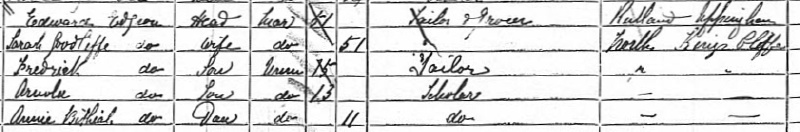 Edward Edgson Head Mar Tailor & Grocer Rutland Uppingham
Sarah do Wife do 51 " North Kings Cliffe
Fredrick do Son Unm 15 Tailor " "
Arnold do Son do 13 Scholar — —
Annie Bithiah do Dau do 11 do — —